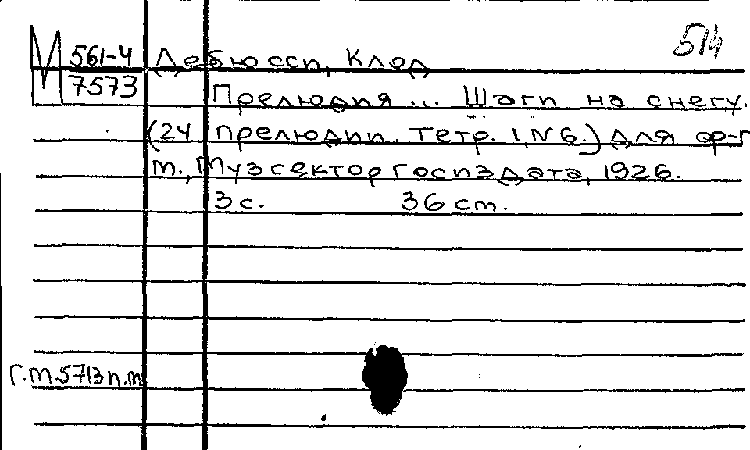 514
М 561-4 Дебюсси, Клод
7573 Прелюдия... Шаги на снегу.
(24 прелюдии. Тетр. I, №6.) Для ф-п
М., Музсектор Госиздата, 1926.
3 с. 36 см.
Г.М.5713 п.м